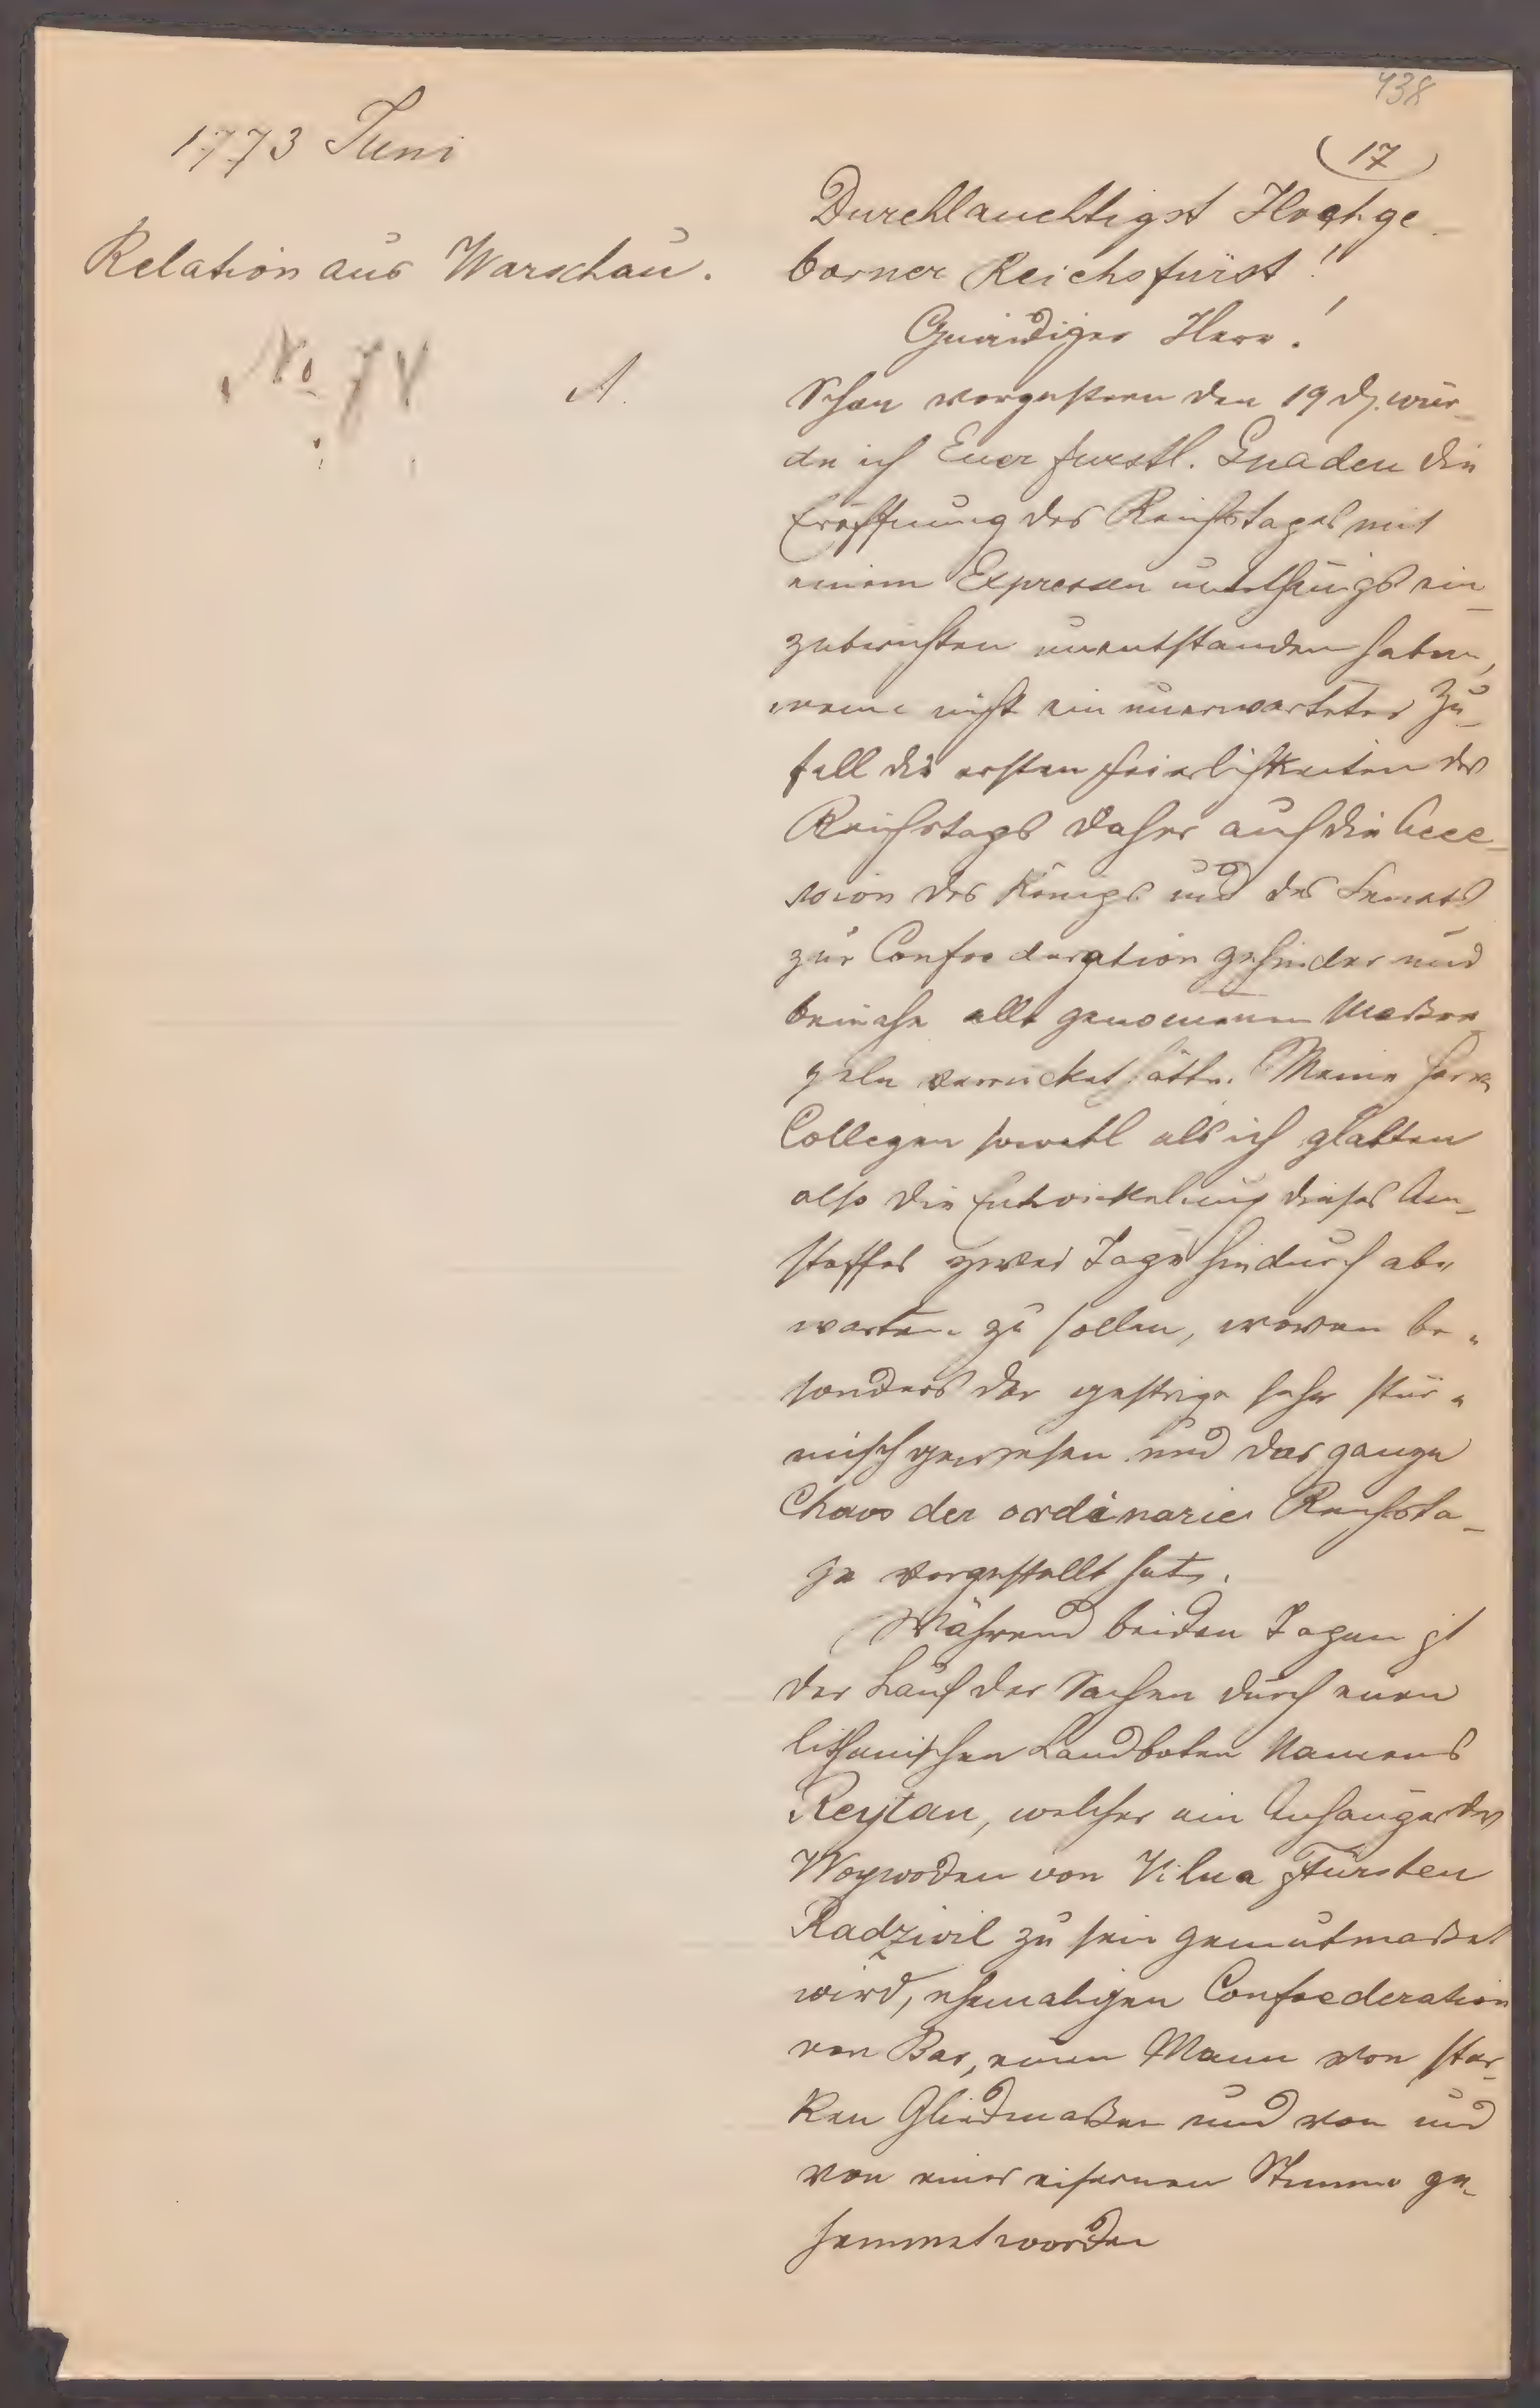 438
(17)
1773 Juni
Relation aus Warschau.
No 78
A.
Durchlauchtigst Hochge-
borner Reichsfürst!
Gnädiger Herr!
Schon vorgestern den 19 d. wür-
de ich Euer furstl. Gnaden die
Eröffnung des Reichstages mit
einem Expressen unterthänigst ein-
zuberichten unentstanden haben,
wenn nicht ein unerwarteter Zu-
fall die ersten Feierlichkeiten des
Reichstags daher auch die Acce-
ssion des Königs und des Senats
zur Confoederation gehindert und
beinahe alle genomenen Maßre-
geln verrücket hätte. Meine Herrn
Collegen sowohl als ich glabten
also die Entwickelung dieses An-
stosses zwei Tage hindurch ab-
warten zu sollen, wovon be-
sonders der gestrige sehr stür-
misch gewesen und das ganze
Chaos der ordinarien Reichsta-
ge vorgestellt hat.
Während beiden Tagen ist
der Lauf der Sachen durch einen
lithauischen Landboten Namens
Reytan, welcher ein Anhänger des
Woywoden von Vilna Fürsten
Radzivil zu sein gemutmaßet
wird, ehemaligen Confoederation
von Bar, einen Mann von star-
ken Gliedmaßen und von und
von einer eisernen Stimme ge-
hemmet worden